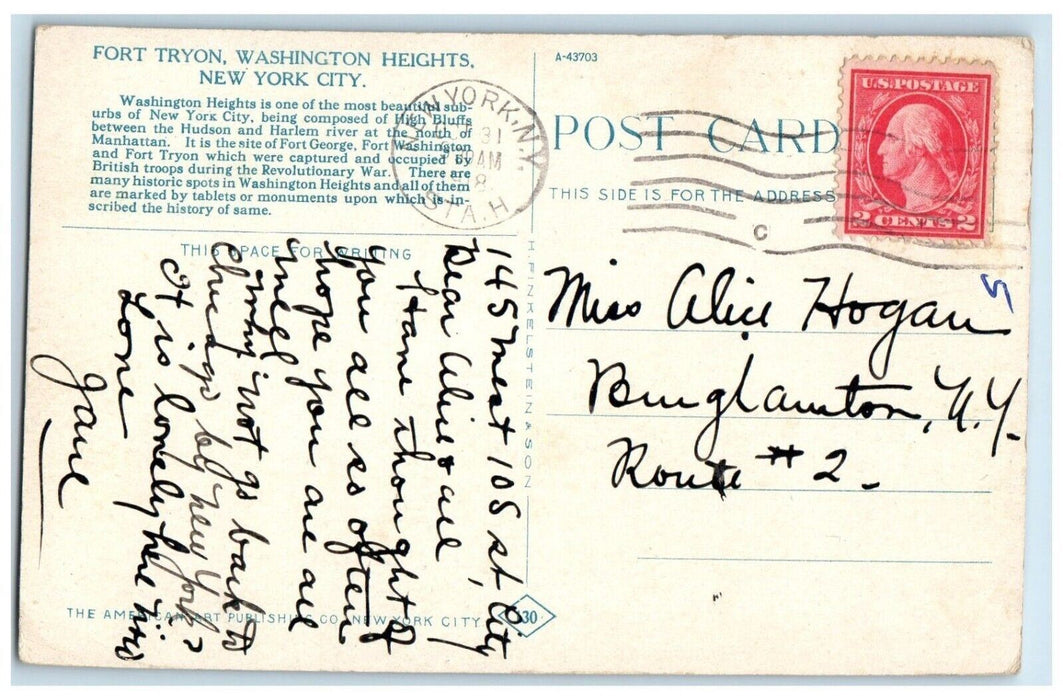 FORT TRYON, WASHINGTON HEIGHTS,
NEW YORK CITY.
Washington Heights is one of the most beautiful sub-
urbs of New York City, being composed of High Bluffs
between the Hudson and Harlem river at the north of
Manhattan. It is the site of Fort George, Fort Washington
and Fort Tryon which were captured and occupied by
British troops during the Revolutionary War. There are
many historic spots in Washington Heights and all of them
are marked by tablets or monuments upon which is in-
scribed the history of same.
THIS SPACE FOR WRITING
145 West 105 st, City
Dear Alice & all,
Have thought of
you all so often.
Hope you are all
well
not go back to
Chicago by New York?
It is lonely here
Love
Jane
THE AMERICAN ART PUBLISHING CO. NEW YORK CITY
H. FINKELSTEIN & SON
630
A-43703
POST CARD
THIS SIDE IS FOR THE ADDRESS
NEW YORK, N.Y.
31
AM
STA. H
C
U.S. POSTAGE
2 CENTS 2
Miss Alice Hogan
Binghamton, N.Y.
Route #2.